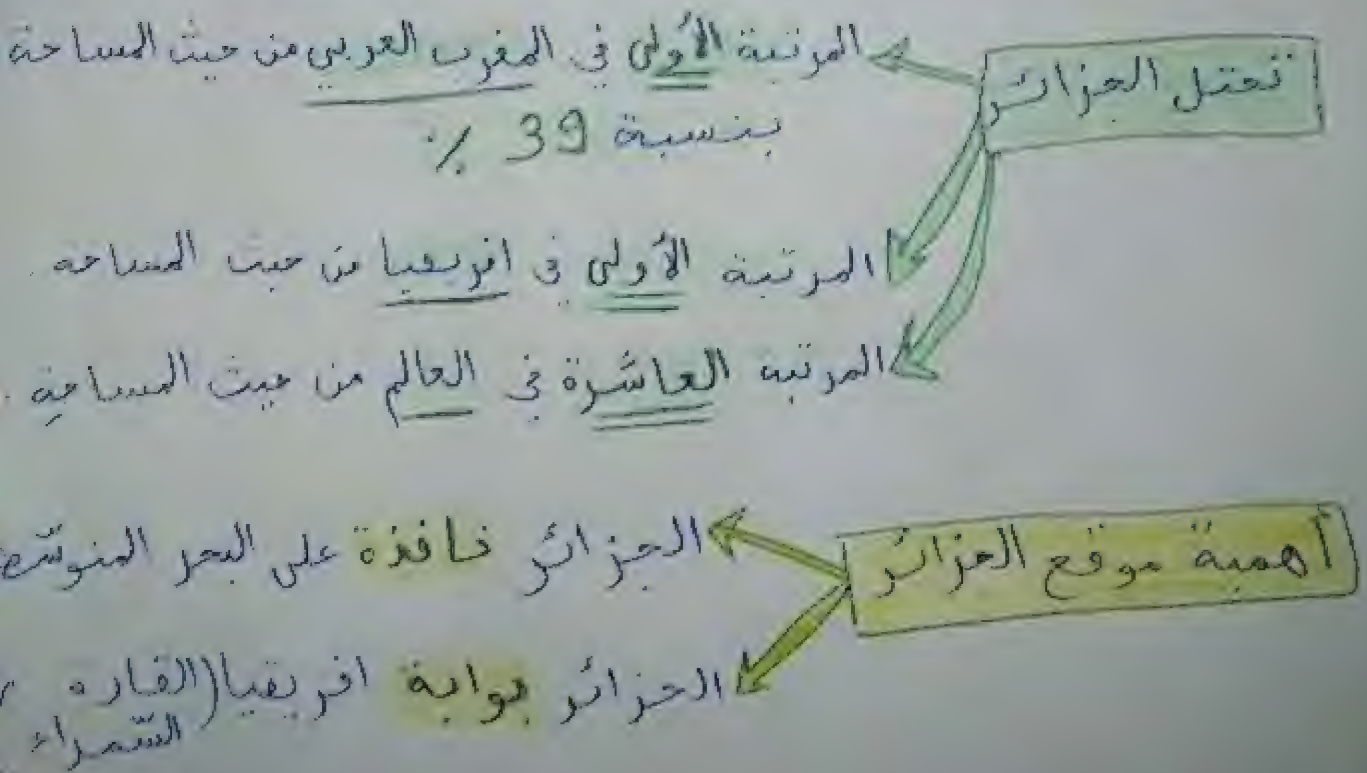 تحتل الجزائر
المرتبة الأولى في المغرب العربي من حيث المساحة
بنسبة 39 %
المرتبة الأولى في افريقيا من حيث المساحة.
المرتبة العاشرة في العالم من حيث المساحة.
أهمية موقع الجزائر
الجزائر نافذة على البحر المتوسّط
الجزائر بوابة افريقيا (القاره
السّمراء